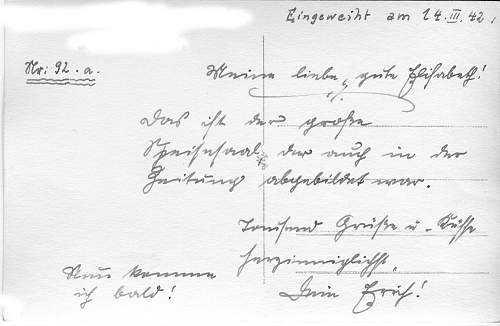 Eingeweiht am 14. III. 42.
Nr: 92. a.
Meine liebe, gute Elisabeth!
Das ist der große
Speisesaal der auch in der
Zeitung abgebildet war.
Tausend Grüße u. Küsse
herzinniglichst,
Dein Erich!
Nun komme
ich bald!